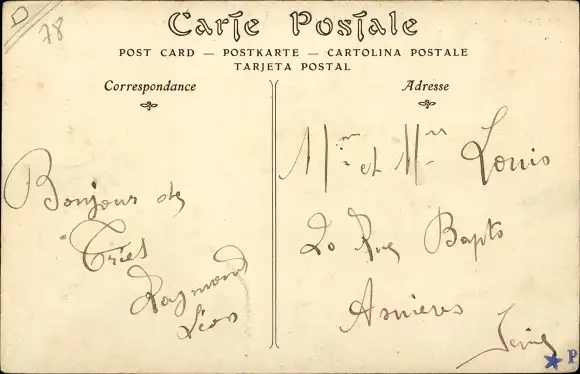 78
Carte Postale
POST CARD — POSTKARTE — CARTOLINA POSTALE
TARJETA POSTAL
Correspondance
Bonjour de
Triel
Raymond
Léon
Adresse
Mme et Mr Louis
20 Rue Bapts
Asnieres
Seine
P